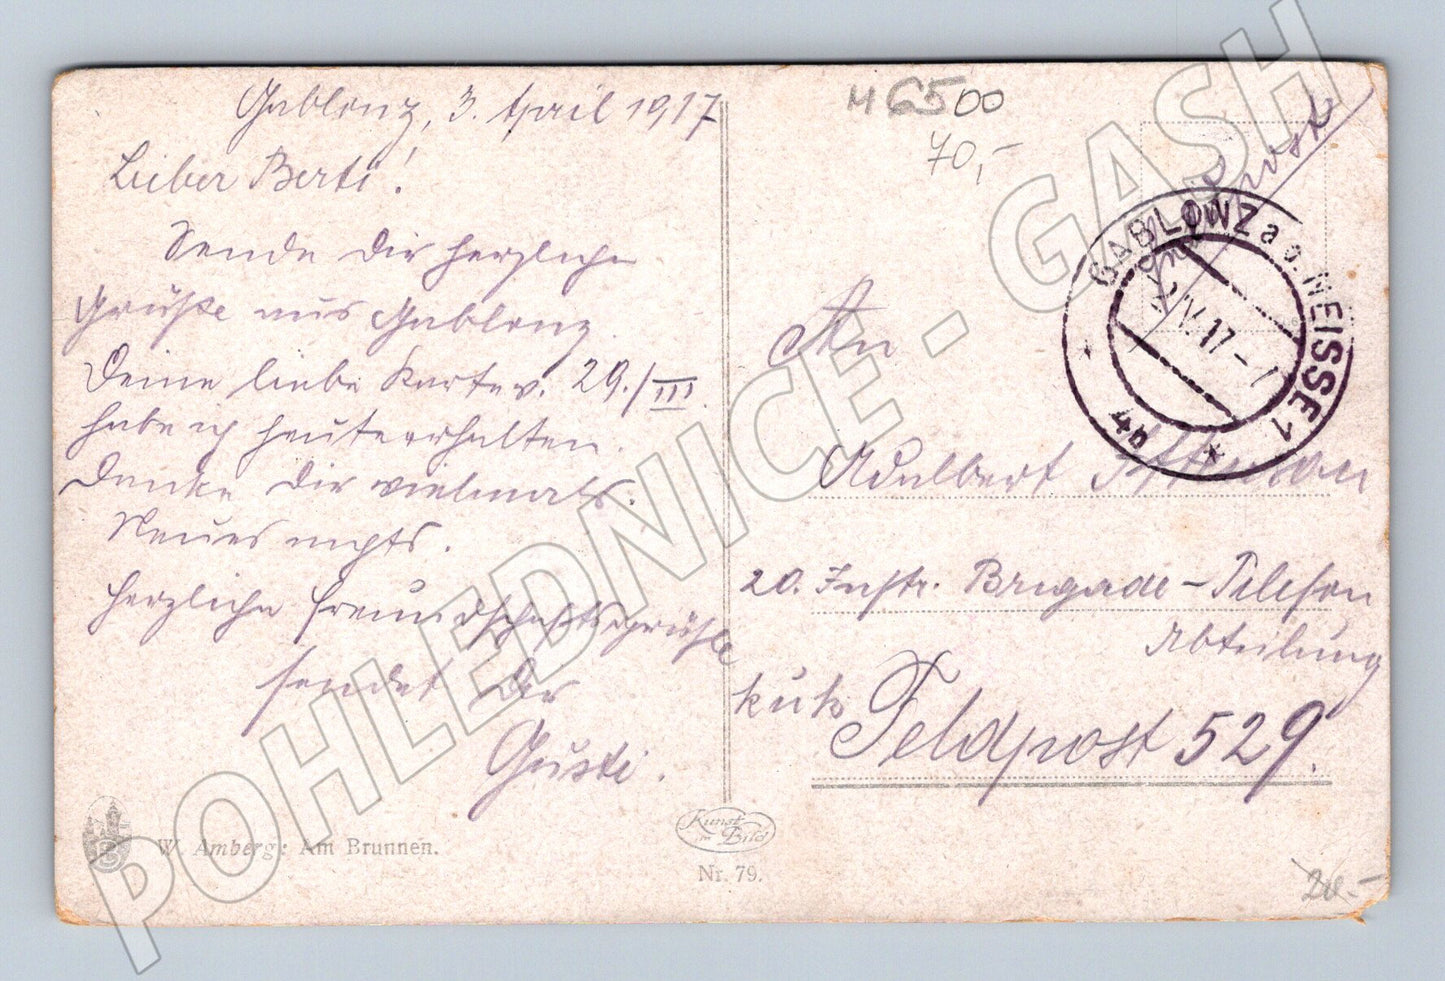 Gablonz, 3. April 1917
Lieber Berti!
Sende Dir herzliche
Grüße aus Gablonz.
Deine liebe Karte v. 29./III.
habe ich heute erhalten.
Danke Dir vielmals.
Neues nichts.
Herzliche Freundschaftsgrüße
sendet Dir
Gusti.
W. Amberg: Am Brunnen.
Kunst
im Bild
Nr. 79.
M 6500
70,-
Feldpost
GABLONZ a. d. NEISSE 1
IV. 17
4a
An
Adalbert
20. Inftr. Brigade-Telefon
Abteilung
Feldpost 529.
20.-
POHLEDNICE - GASH